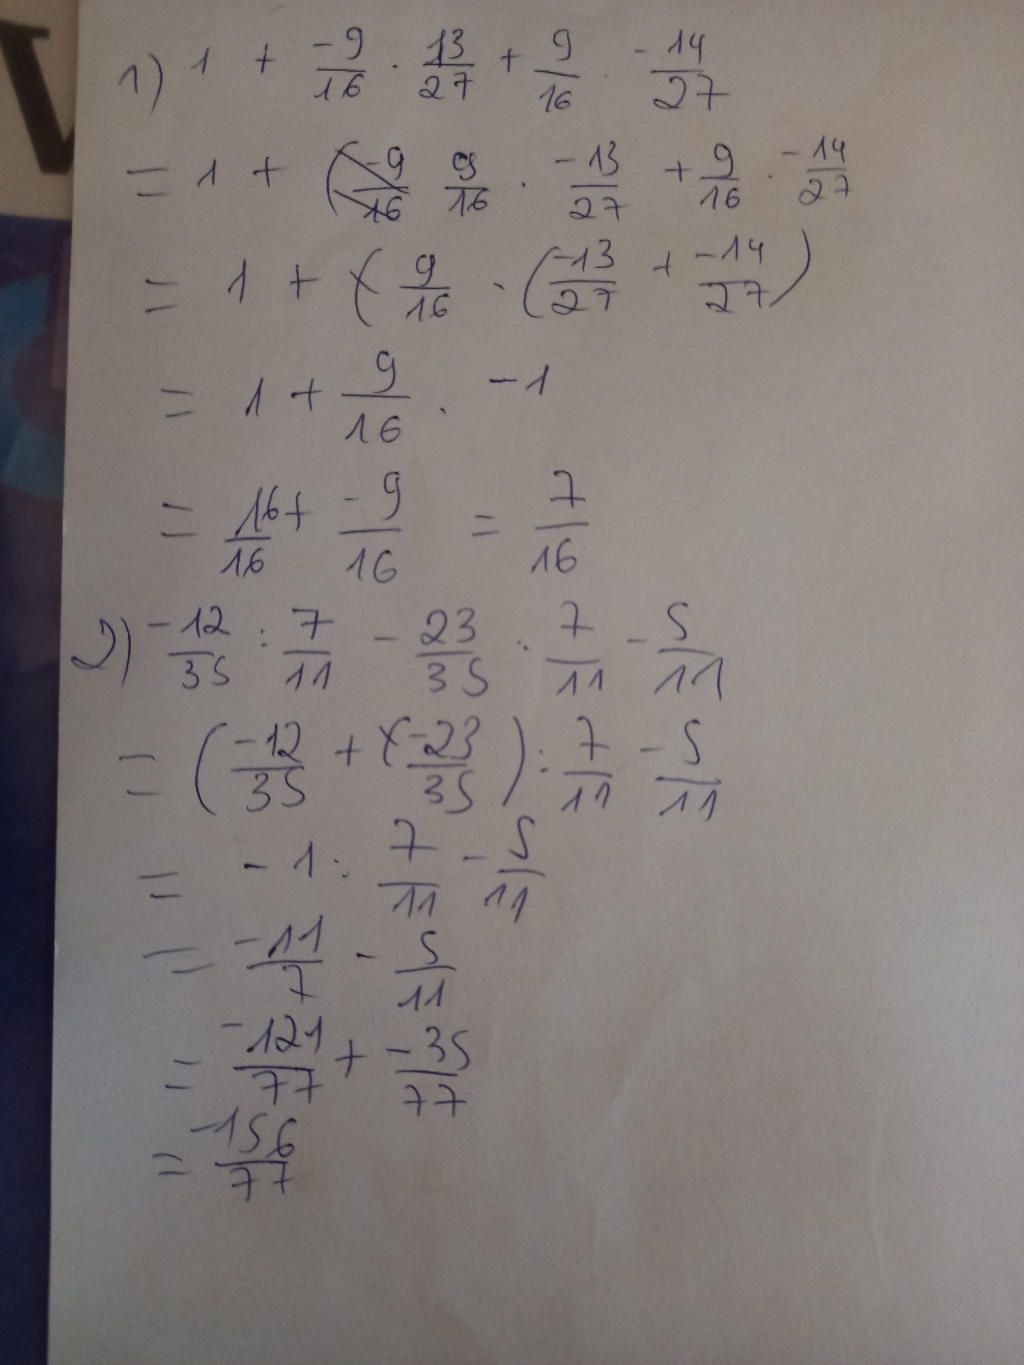 1) 1 + -9/16 . 13/27 + 9/16 . -14/27
= 1 + ( 9/16 . -13/27 + 9/16 . -14/27
= 1 + ( 9/16 . ( -13/27 + -14/27 )
= 1 + 9/16 . -1
= 16/16 + -9/16 = 7/16
2) -12/35 : 7/11 - 23/35 : 7/11 - 5/11
= ( -12/35 + ( -23/35 ) : 7/11 - 5/11
= -1 : 7/11 - 5/11
= -11/7 - 5/11
= -121/77 + -35/77
= -156/77